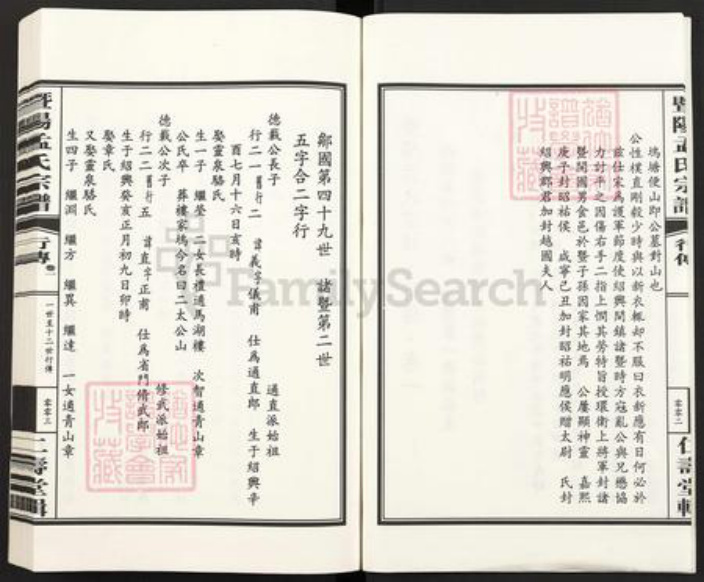 塢塘便山即公墓對山也
公性樸直剛毅少時與以新衣輒却不服曰衣新應有日何必於
茲仕宋為護軍節度使紹興間鎮諸暨時方寇亂公與兄懋協
力討平之因傷右手二指上憫其勞特旨授環衛上將軍封諸
暨開國男食邑於暨子孫因家其地焉　公屢顯神靈　嘉熙
庚子封昭祐侯　咸寧己丑加封昭祐明應侯贈太尉　氏封
紹興郡君加封越國夫人
暨陽孟氏宗譜
行傳
零零二
仁壽堂輯
鄒國第四十九世　諸暨第二世
五字合二字行
德載公長子　通直派始祖
行二一舊行二　諱義字儀甫　仕為通直郎　生于紹興辛
酉七月十六日亥時
娶靈泉駱氏
生一子　繼瑩　二女長禮適馬湖樓　次智適青山章
公氏卒　葬樓家塢今名曰二太公山
德載公次子　修武派始祖
行二二舊行五　諱直字正甫　仕為省門脩武郎
生于紹興癸亥正月初九日卯時
娶章氏
又娶靈泉駱氏
生四子　繼淵　繼方　繼異　繼達　一女適青山章
暨陽孟氏宗譜
行傳
卷二
一世至十二世行傳
零零三
仁壽堂輯
FamilySearch